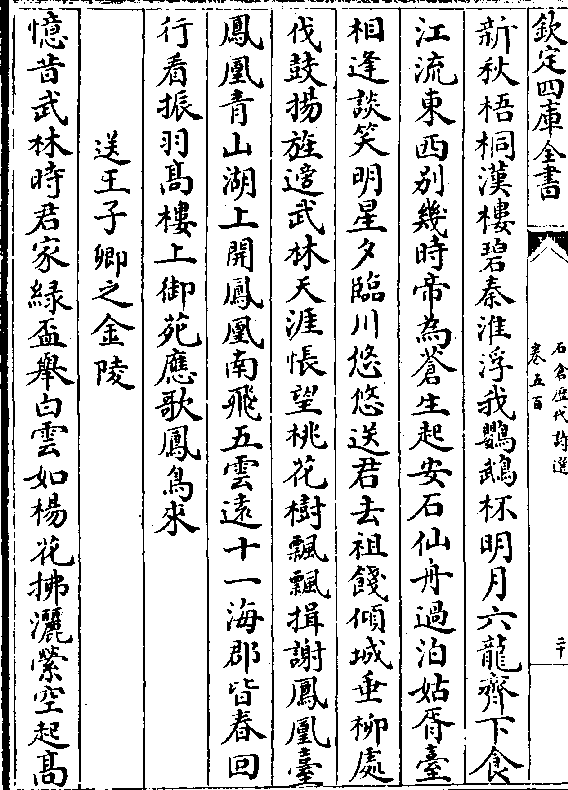 欽定四庫全書
石倉歷代詩選
卷五百
二十
新秋梧桐漢樓碧秦淮浮我鸚鵡杯明月六龍齊下食
江流東西別幾時帝為蒼生起安石仙舟過泊姑胥臺
相逢談笑明星夕臨川悠悠送君去祖餞傾城垂柳處
伐鼓揚旌遶武林天涯悵望桃花樹飄飄揖謝鳳凰臺
鳳凰青山湖上開鳳凰南飛五雲遠十一海郡皆春回
行看振羽髙樓上御苑應歌鳳鳥來
送王子卿之金陵
憶昔武林時君家緑盃舉白雲如楊花拂灑縈空起髙